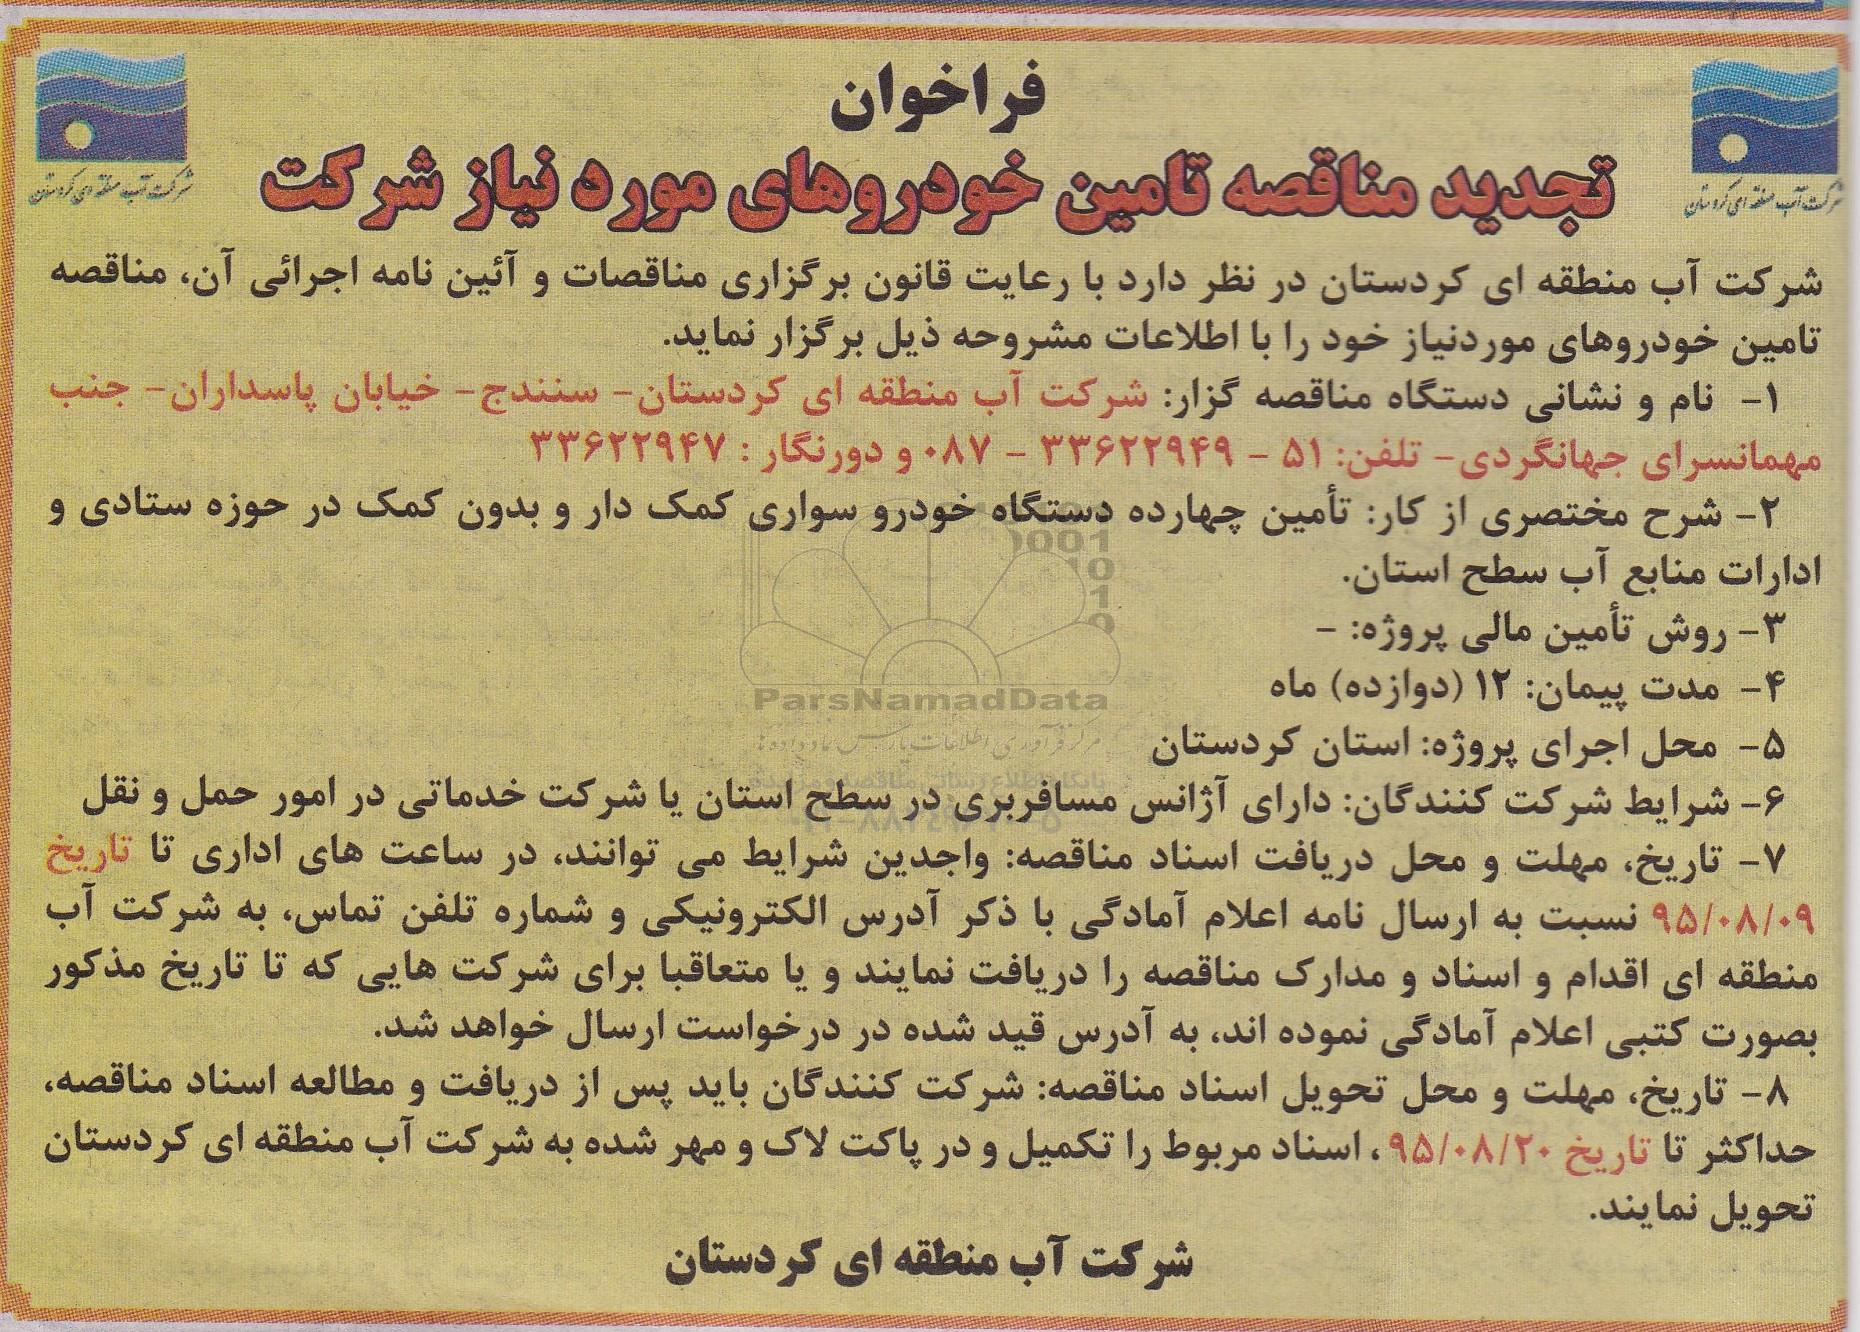 شرکت آب منطقه ای کردستان
شرکت آب منطقه ای کردستان
فراخوان
تجدید مناقصه تامین خودروهای مورد نیاز شرکت
شرکت آب منطقه ای کردستان در نظر دارد با رعایت قانون برگزاری مناقصات و آئین نامه اجرائی آن، مناقصه
تامین خودروهای موردنیاز خود را با اطلاعات مشروحه ذیل برگزار نماید.
۱- نام و نشانی دستگاه مناقصه گزار: شرکت آب منطقه ای کردستان- سنندج- خیابان پاسداران- جنب
مهمانسرای جهانگردی- تلفن: ۵۱ - ۳۳۶۲۲۹۴۹ - ۰۸۷ و دورنگار : ۳۳۶۲۲۹۴۷
۲- شرح مختصری از کار: تأمین چهارده دستگاه خودرو سواری کمک دار و بدون کمک در حوزه ستادی و
ادارات منابع آب سطح استان.
۳- روش تأمین مالی پروژه: -
۴- مدت پیمان: ۱۲ (دوازده) ماه
۵- محل اجرای پروژه: استان کردستان
۶- شرایط شرکت کنندگان: دارای آژانس مسافربری در سطح استان یا شرکت خدماتی در امور حمل و نقل
۷- تاریخ، مهلت و محل دریافت اسناد مناقصه: واجدین شرایط می توانند، در ساعت های اداری تا تاریخ
۹۵/۰۸/۰۹ نسبت به ارسال نامه اعلام آمادگی با ذکر آدرس الکترونیکی و شماره تلفن تماس، به شرکت آب
منطقه ای اقدام و اسناد و مدارک مناقصه را دریافت نمایند و یا متعاقبا برای شرکت هایی که تا تاریخ مذکور
بصورت کتبی اعلام آمادگی نموده اند، به آدرس قید شده در درخواست ارسال خواهد شد.
۸- تاریخ، مهلت و محل تحویل اسناد مناقصه: شرکت کنندگان باید پس از دریافت و مطالعه اسناد مناقصه،
حداکثر تا تاریخ ۹۵/۰۸/۲۰ ، اسناد مربوط را تکمیل و در پاکت لاک و مهر شده به شرکت آب منطقه ای کردستان
تحویل نمایند.
شرکت آب منطقه ای کردستان
ParsNamadData
مرکز فرآوری اطلاعات پارس نماد داده ها